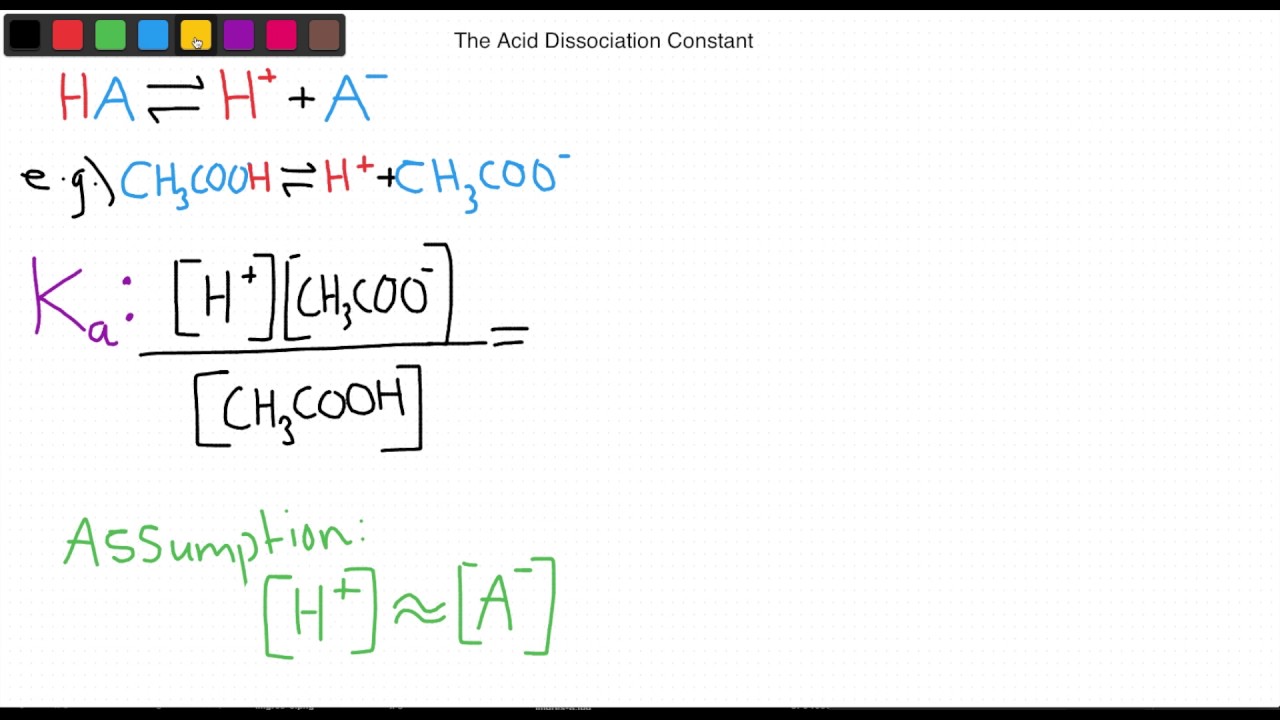 The Acid Dissociation Constant
HA ⇌ H⁺ + A⁻
e.g.) CH₃COOH ⇌ H⁺ + CH₃COO⁻
Kₐ: [H⁺][CH₃COO⁻] =
[CH₃COOH]
Assumption:
[H⁺] ≈ [A⁻]